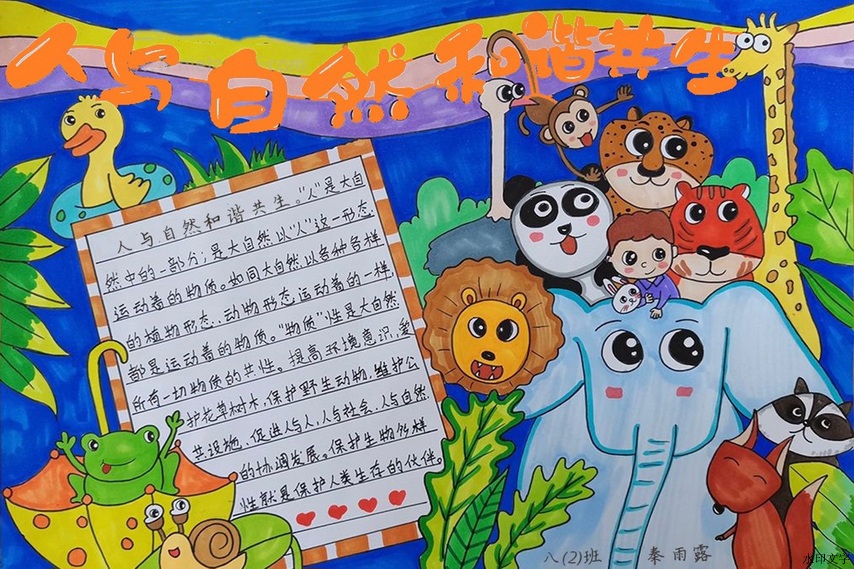 人与自然和谐共生
人与自然和谐共生。“人”是大自
然中的一部分；是大自然以“人”这一形态
运动着的物质。如同大自然以各种各样
的植物形态、动物形态运动着的一样
都是运动着的物质。“物质”性是大自然
所有一切物质的共性。提高环境意识，爱
护花草树木，保护野生动物，维护公
共设施、促进人与人，人与社会，人与自然
的协调发展。保护生物多样
性就是保护人类生存的伙伴。
八(2)班 秦雨露
水印文字